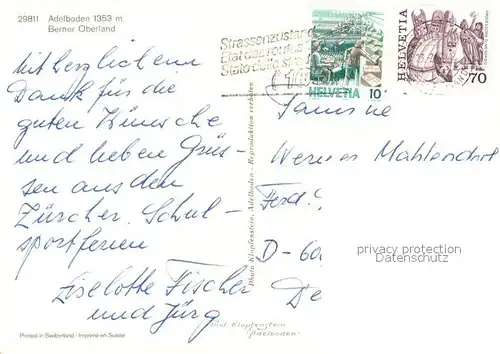 29811 Adelboden 1353 m
Berner Oberland
Mit herzlichem
Dank für die
guten Wünsche
und lieben Grüs-
sen aus den
Zürcher. Schul-
sportferien
Liselotte Fischer
und Jürg
Printed in Switzerland - Imprimé en Suisse
Photo Klopfenstein, Adelboden - Reproduktion verboten
Phot. Klopfenstein
Adelboden
Strassenzustand
Etat des routes
Stato delle
HELVETIA
10
HELVETIA
70
Familie
Werner Mahlendorf
Ferd.
D-60
De
privacy protection
Datenschutz